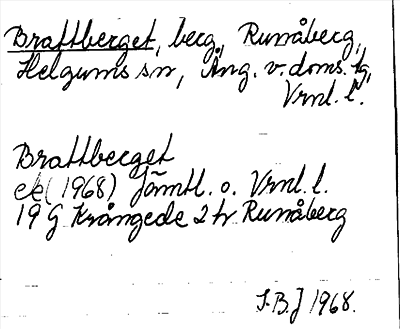 Brattberget, berg, Runåberg,
Helgums sn, Ång. v. doms. tg,
Vrnl. l.
Brattberget
ek (1968) Jämtl. o. Vrnl. l.
19 G Krångede 2 tr Runåberg
I.B.J 1968.